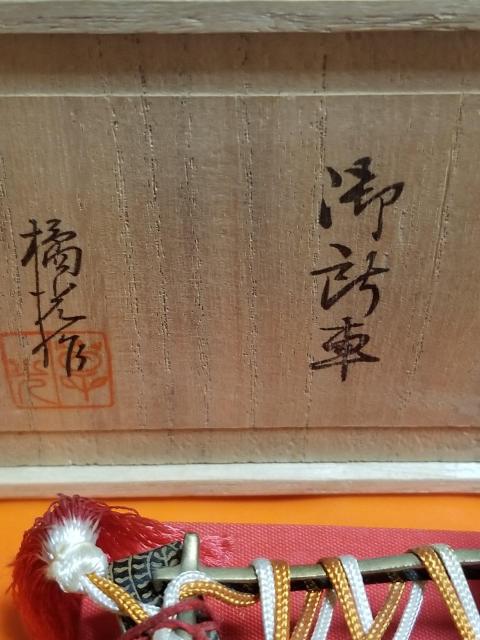 御所車
橘光作